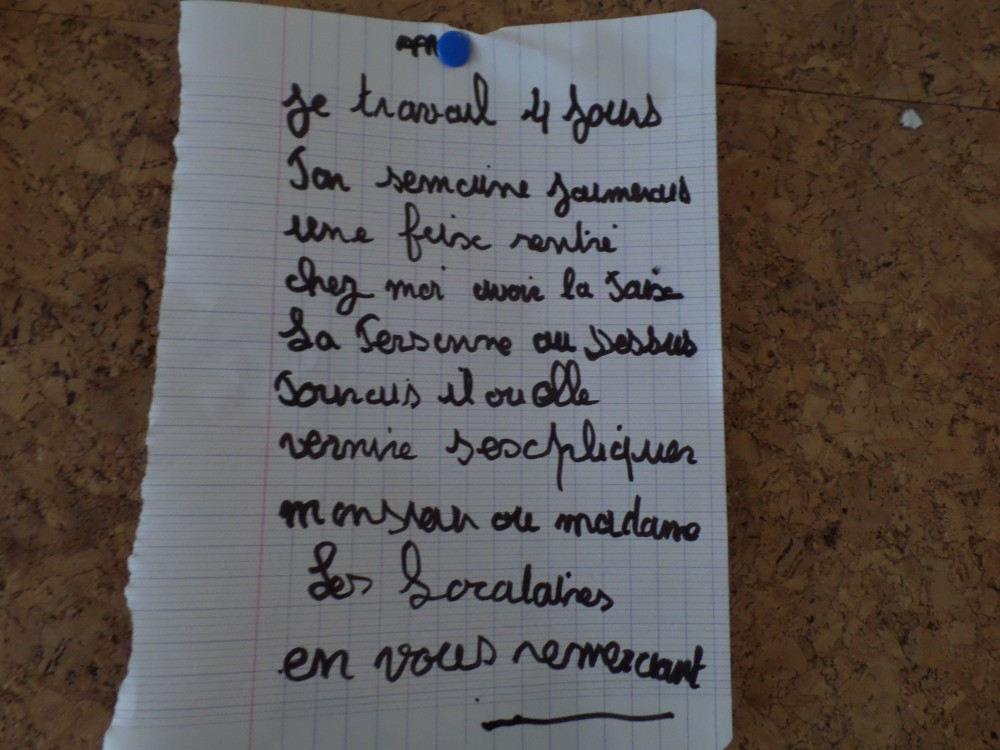 je travail 4 jours
par semaine j'aimerais
une foix rentré
chez moi avoir la paix
La personne au dessus
pourais il ou elle
vernire s'escpliquer
monsieur ou madame
Les Localaires
en vous remerciant